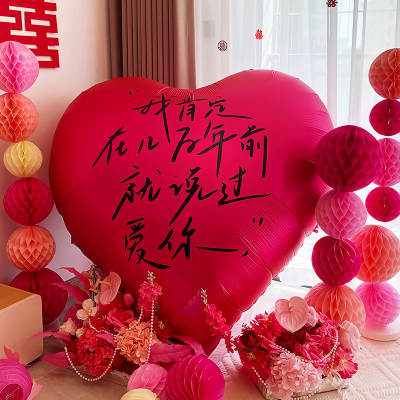 囍
"我肯定
在几百年前
就说过
爱你，"